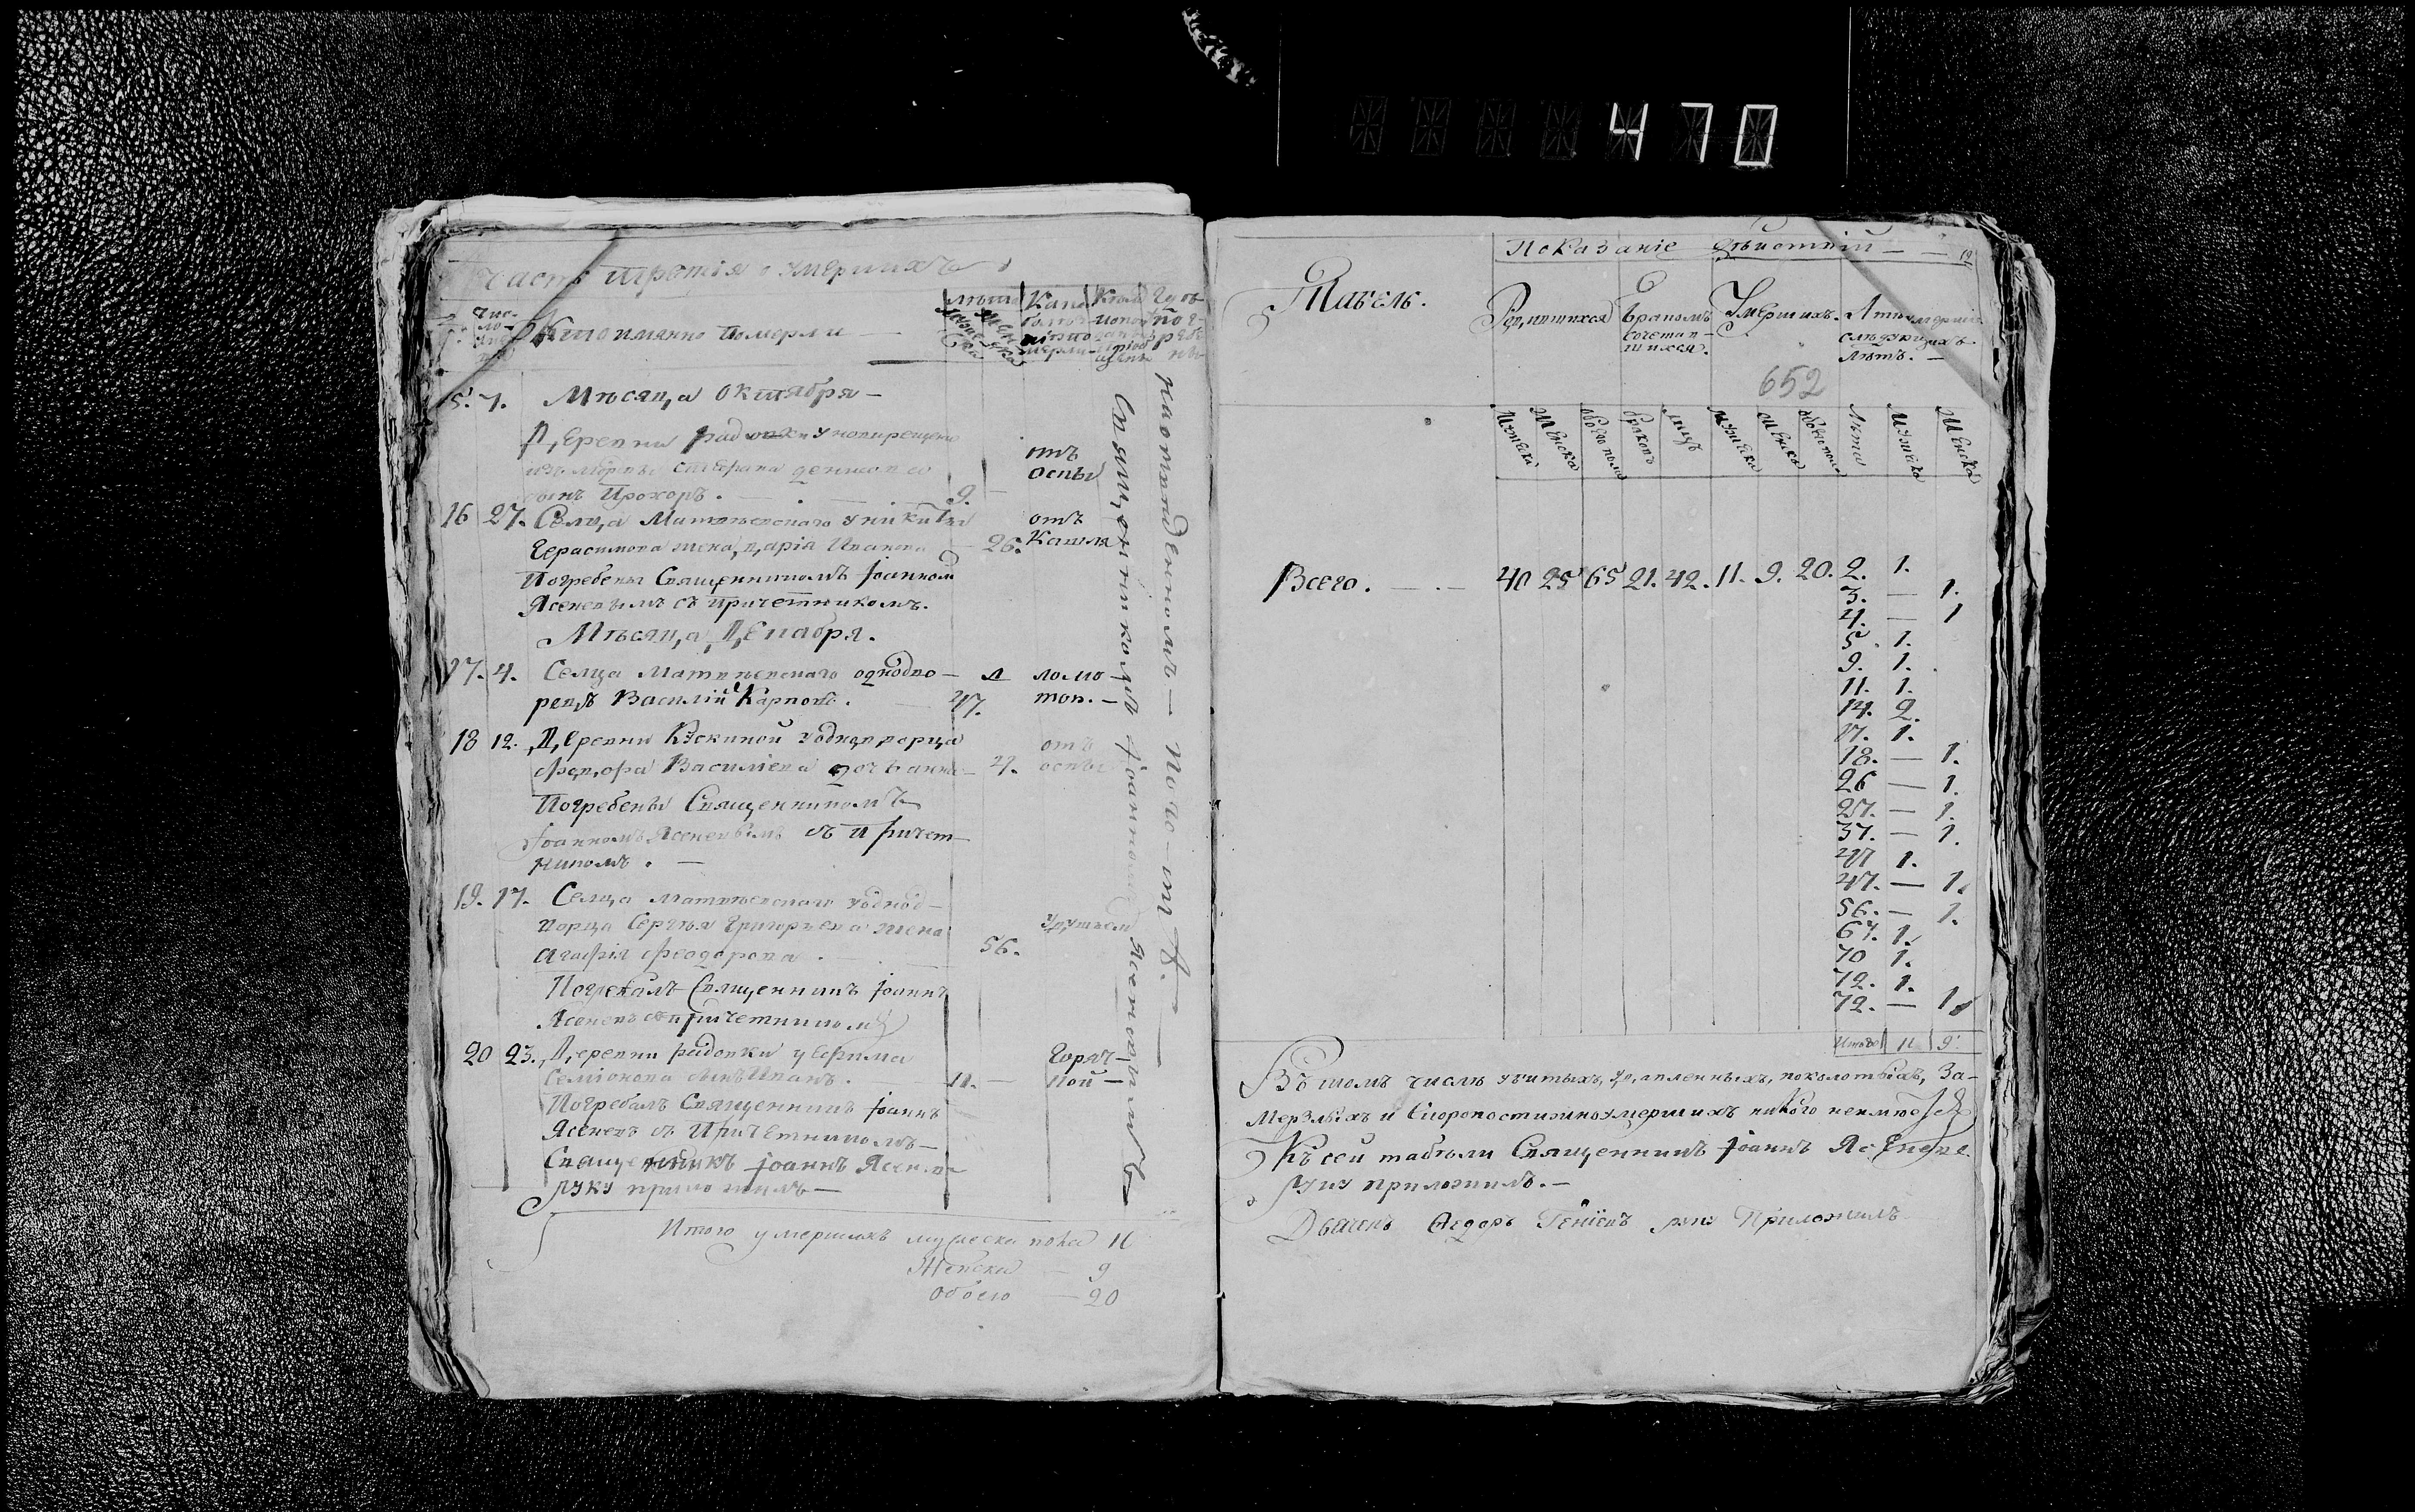 470
Часть третія о умершихъ
Число дней
Кто имянно померли
лѣта
мужеска
женска
Какою болѣзнію померли
Кѣмъ исповѣданы и приобщены
Гдѣ погребены
15. 7. Мѣсяца Октября —
Деревни радовки у
Стефана Денисова
сынъ Прохоръ. — 9. отъ оспы
16 27. Селца Матвѣевскаго у никиты
Герасимова жена дарія Иванова 26. отъ Кашля
Погребены Священникомъ Іоанномъ
Ясеневымъ съ причетникомъ.
Мѣсяца Декабря.
17. 4. Селца Матвѣевскаго однодво-
рецъ Василій Карповъ. 47. ломо-
тою. —
18 12. Деревни Кускиной у однодворца
Федора Василіева дочь анна — 4. отъ оспы
Погребены Священникомъ
Іоанномъ Ясеневымъ съ Причет-
никомъ. —
19. 17. Селца матвѣевскаго у однод-
ворца Сергѣя Григорьева жена
Агафія Феодорова. 56. удушьем
Погребалъ Священникъ Іоаннъ
Ясеневъ съ причетникомъ
20 23. Деревни радовки у Ефима
Семіонова сынъ Иванъ. 11. — Горяч-
кой —
Погребалъ Священникъ Іоаннъ
Ясеневъ съ Причетникомъ —
Священникъ Іоаннъ Ясенев
руку приложилъ —
Священникомъ Іоанномъ Ясеневымъ
на отведенномъ — по-
Итого умершихъ мужеска пола 11
Женска — 9
Обоего — 20
Табель.
Показаніе дѣйствій — 12
Родившихся
Бракомъ сочетав-
шихся.
Умершихъ.
Лѣта умершихъ
слѣдующихъ
лѣтъ. —
652
Мужеска
Женска
обоего пола
браковъ
лицъ
мужеска
женска
обоего пола
Лѣта
Мужеска
Женска
Всего. — . — 40 25 65 21. 42. 11. 9. 20. 2. 1.
3. — 1.
4. — 1
5. 1.
9. 1.
11. 1.
14. 2.
17. 1.
18. — 1.
26 — 1.
27. — 1.
37. — 1.
47 1.
47. — 1.
56. — 1.
67. 1.
70 1.
72. 1.
72. — 1
Итого 11 9.
Въ томъ числѣ убитыхъ, удавленныхъ, поколотыхъ, За-
мерзлыхъ и Скоропостижно умершихъ никого неимѣется
Къ сей табѣли Священникъ Іоаннъ Ясеневъ
руку приложилъ. —
Дьячекъ Федоръ руку Приложилъ